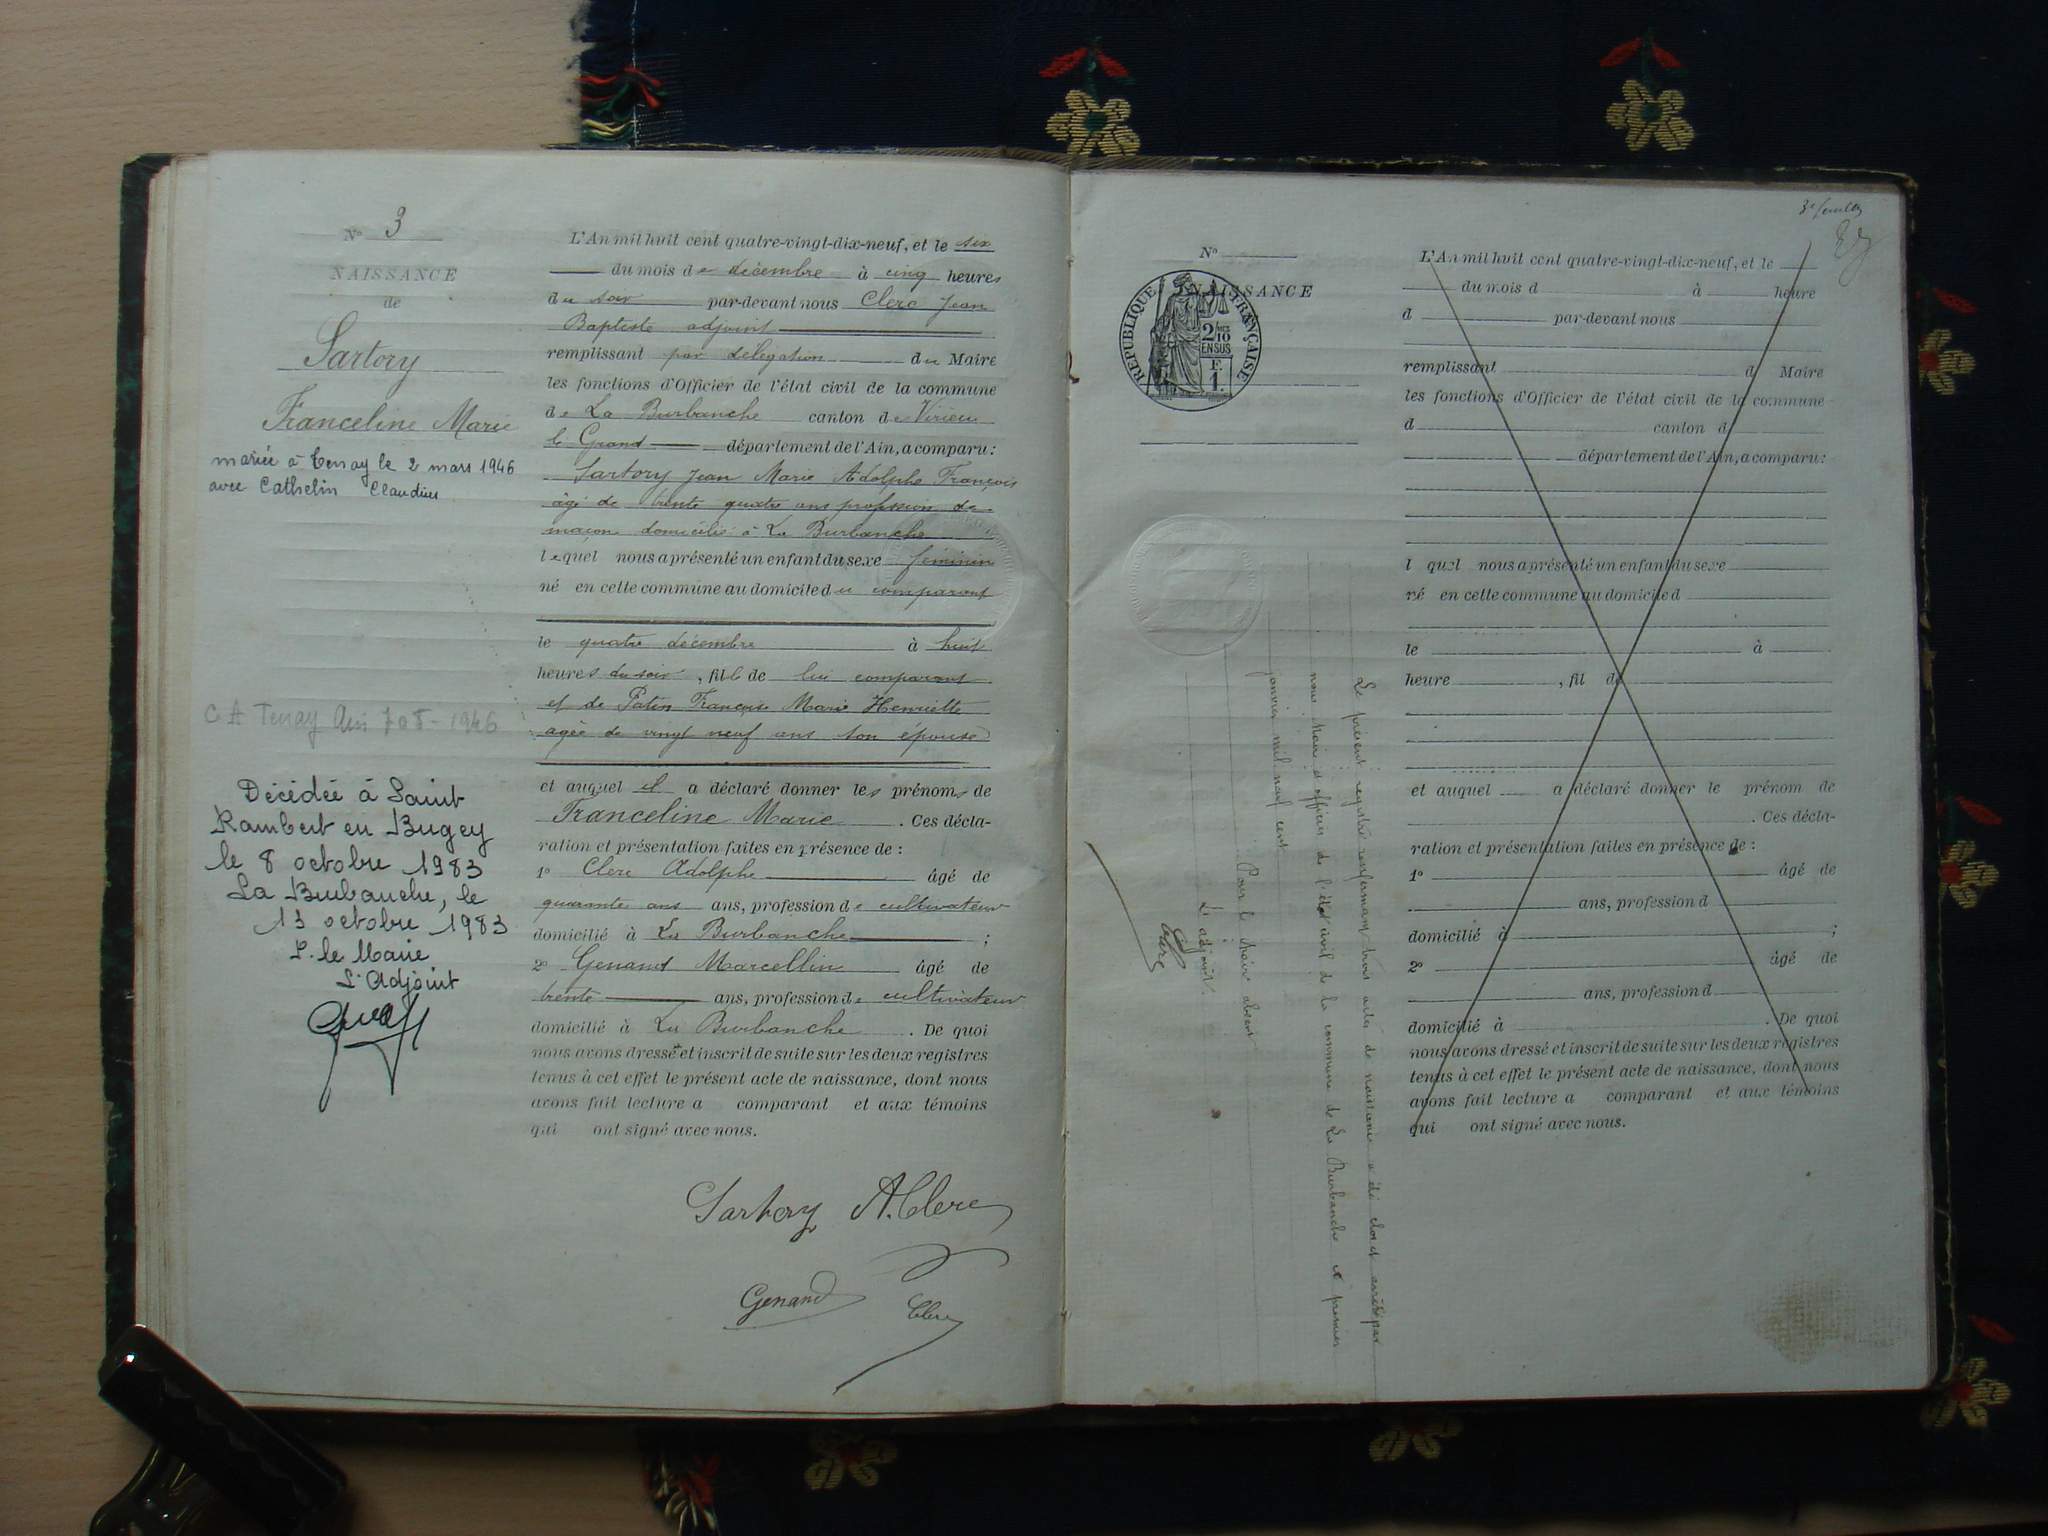 N° 3
NAISSANCE
de
Sartory
Franceline Marie
mariée à Tenay le 2 mars 1946
avec Cathelin Claudius
C A Tenay Ain 1946
Décédée à Saint
Rambert en Bugey
le 8 octobre 1983
La Burbanche, le
13 octobre 1983
P. le Maire
L'Adjoint
L'An mil huit cent quatre-vingt-dix-neuf, et le six
du mois de décembre à cinq heures
du soir par-devant nous Clerc Jean
Baptiste adjoint
remplissant par délégation du Maire
les fonctions d'Officier de l'état civil de la commune
de La Burbanche canton de Virieu
le Grand département de l'Ain, a comparu:
Sartory Jean Marie Adolphe François
âgé de trente quatre ans profession de
maçon domicilié à La Burbanche
lequel nous a présenté un enfant du sexe féminin
né en cette commune au domicile du comparant
le quatre décembre à huit
heures du soir, fille de lui comparant
et de Patin Françoise Marie Henriette
agée de vingt neuf ans son épouse
et auquel il a déclaré donner les prénoms de
Franceline Marie. Ces décla-
ration et présentation faites en présence de:
1° Clerc Adolphe âgé de
quarante ans ans, profession de cultivateur
domicilié à La Burbanche;
2° Genand Marcellin âgé de
trente ans, profession de cultivateur
domicilié à La Burbanche. De quoi
nous avons dressé et inscrit de suite sur les deux registres
tenus à cet effet le présent acte de naissance, dont nous
avons fait lecture a comparant et aux témoins
qui ont signé avec nous.
Sartory A. Clerc
Genand Clerc
3e feuillet
N°
NAISSANCE
RÉPUBLIQUE FRANÇAISE
2/10
EN SUS
F.
1.
Le présent registre renfermant trois actes de naissance a été clos et arrêté par
nous Maire et officier de l'état civil de la commune de La Burbanche le premier
janvier mil neuf cent
Pour le Maire absent
L'adjoint
Clerc
L'An mil huit cent quatre-vingt-dix-neuf, et le
du mois d à heure
d par-devant nous
remplissant d Maire
les fonctions d'Officier de l'état civil de la commune
d canton d
département de l'Ain, a comparu:
l quel nous a présenté un enfant du sexe
né en cette commune au domicile d
le à
heure, fil de
et auquel a déclaré donner le prénom de
. Ces décla-
ration et présentation faites en présence de:
1° âgé de
ans, profession d
domicilié à ;
2° âgé de
ans, profession d
domicilié à . De quoi
nous avons dressé et inscrit de suite sur les deux registres
tenus à cet effet le présent acte de naissance, dont nous
avons fait lecture a comparant et aux témoins
qui ont signé avec nous.